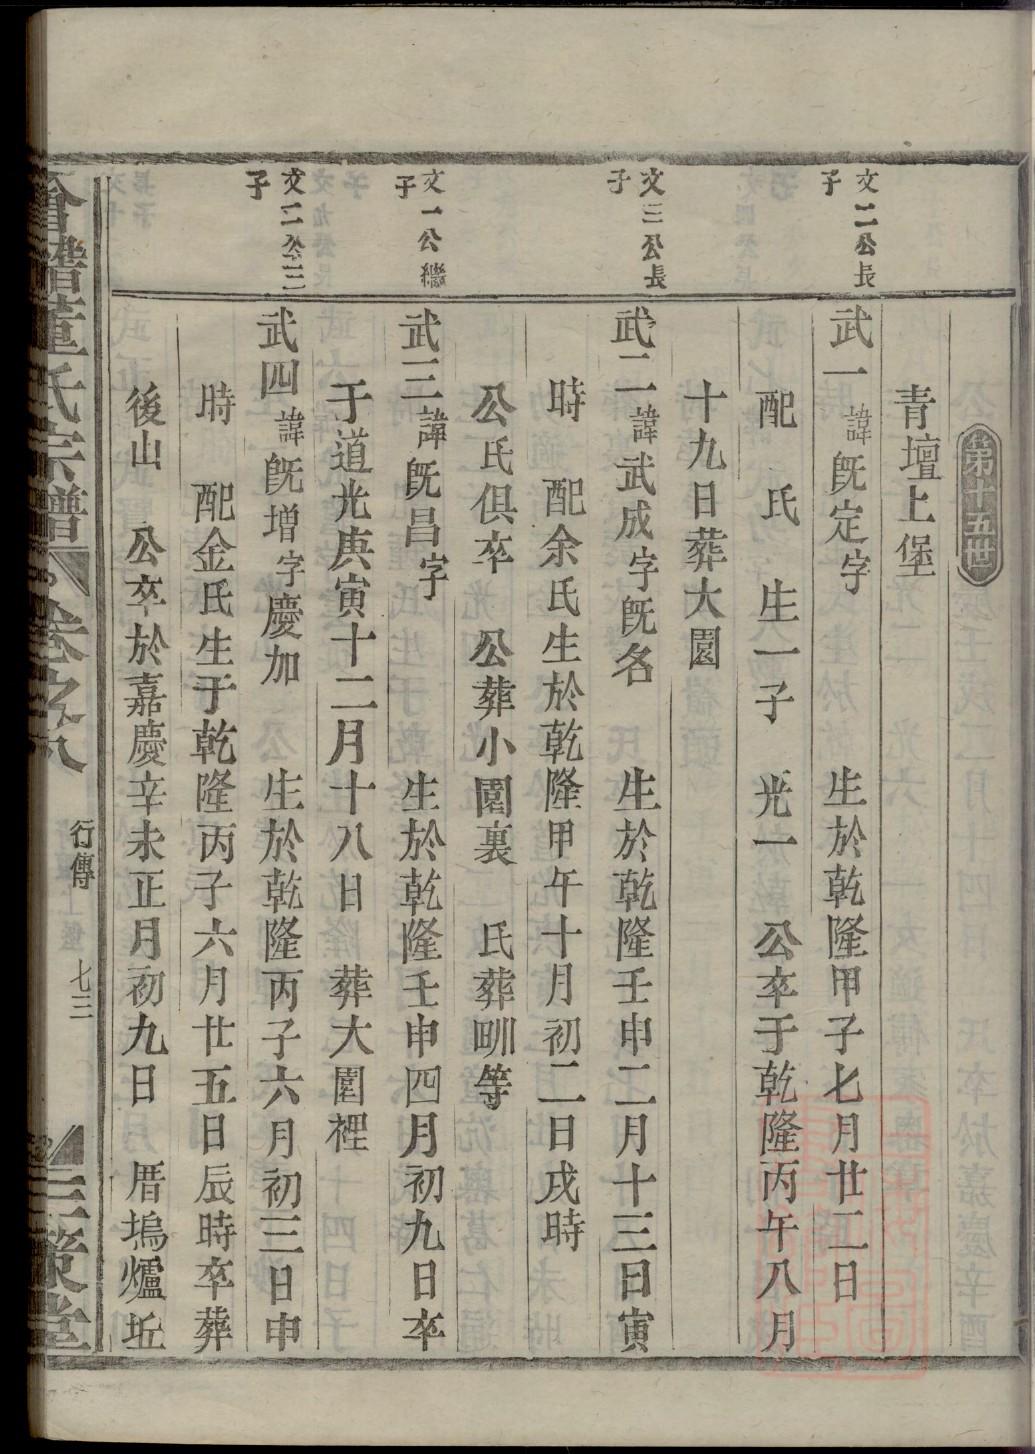 第十五世
青壇上堡
文二公長
子
武一諱旣定字 生於乾隆甲子七月廿二日
配 氏 生一子 光一 公卒于乾隆丙午八月
十九日葬大園
文三公長
子
武二諱武成字旣名 生於乾隆壬申二月十三日寅
時 配余氏生於乾隆甲午十月初二日戌時
公氏俱卒 公葬小園裏 氏葬㽟等
文一公繼
子
武三諱旣昌字 生於乾隆壬申四月初九日卒
于道光庚寅十二月十八日 葬大園裡
文二公三
子
武四諱旣增字慶加 生於乾隆丙子六月初三日申
時 配金氏生于乾隆丙子六月廿五日辰時卒葬
後山 公卒於嘉慶辛未正月初九日 厝塢爐坵
董氏宗譜 卷之八 行傳 七三 三策堂